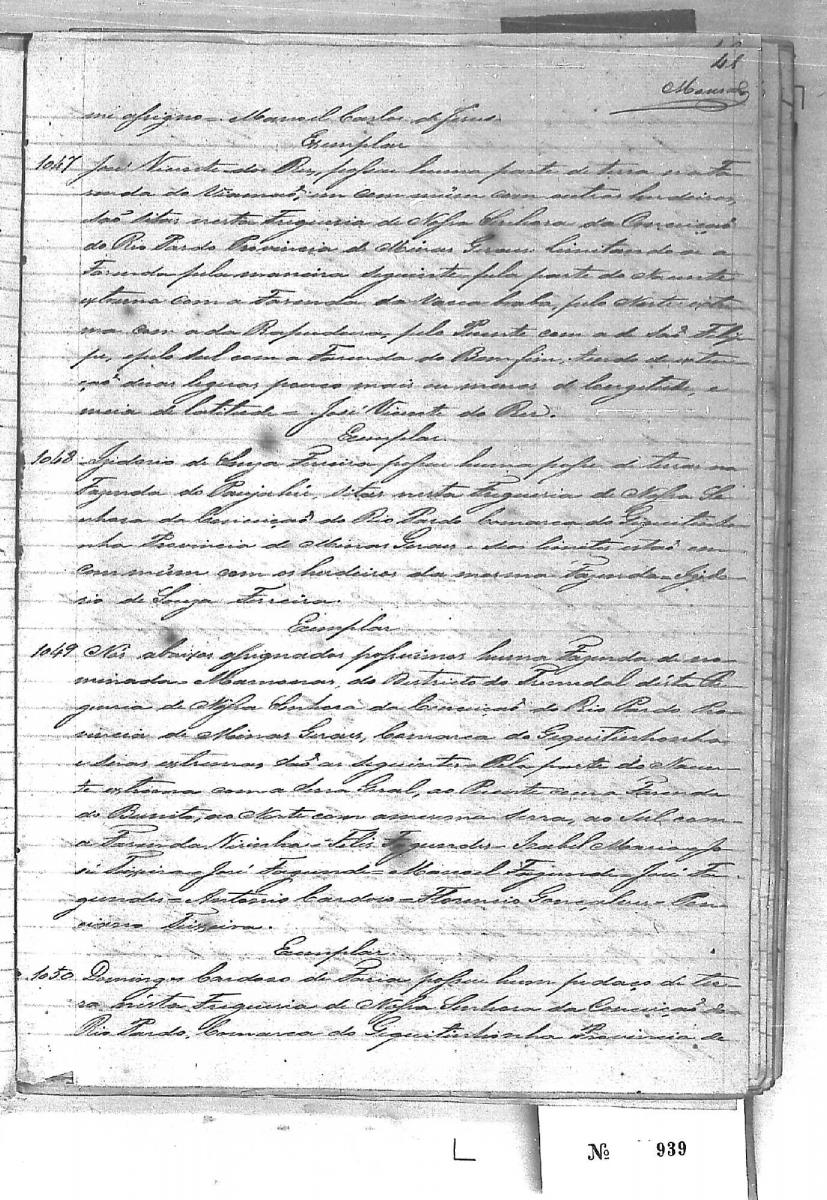 41
Moura
mi assigno = Manoel Carlos de Jesus
Exemplar
1047 José Vicente do Rez, possue huma parte de terra na Fa-
zenda do Viamaõ, em commúm com outros herdeiros,
saõ sitas nesta Freguezia de Nossa Senhora da Conceiçaõ
do Rio Pardo Provincia de Minas Geraes limitando-se a
Fazenda pela maneira seguinte pela parte do Nascente
extrema com a Fazenda da Vacca baba, pelo Norte extre-
ma com a da Rapadura, pelo Poente com a de Saõ Felip-
pe, e pelo Sul com a Fazenda do Bomfim, tendo de exten-
çaõ duas legoas pouco mais ou menos de longitude, e
meia de latitude = José Vicente do Rez.
Exemplar
1048 Izidorio de Souza Ferreira possue huma posse de terras na
Fazenda do Pajahú, sitas nesta Freguezia de Nossa Se-
nhora da Conceiçaõ do Rio Pardo Comarca do Gequitinho-
nha Provincia de Minas Geraes e seos limites estaõ em
commúm com os herdeiros da mesma Fazenda = Izido-
rio de Souza Ferreira.
Exemplar
1049 Nós abaixos assignados possuimos huma Fazenda de no-
minada = do Districto do Tremedal désta Fre-
guezia de Nossa Senhora da Conceiçaõ do Rio Pardo Pro-
vincia de Minas Geraes, Comarca do Gequitinhonha
e suas extremas saõ as seguintes = Pela parte do Nascen-
te extrema com a Serra Geral, ao Poente com a Fazenda
do Bonito, ao Norte com a mesma Serra, ao Sul com
a Fazenda = Felis Fagundes = Izabel Maria = Jo-
sé Teixeira = José Fagundes = Manoel Fagundes = José Fa-
gundes = Antonio Cardoso = Florencio Gonçalves =
Teixeira.
Exemplar
1050 Domingos Cardoso de Faria possue hum pedaço de ter-
ra nésta Freguezia de Nossa Senhora da Conceiçaõ do
Rio Pardo, Comarca do Gequitinhonha Provincia de
Nº 939